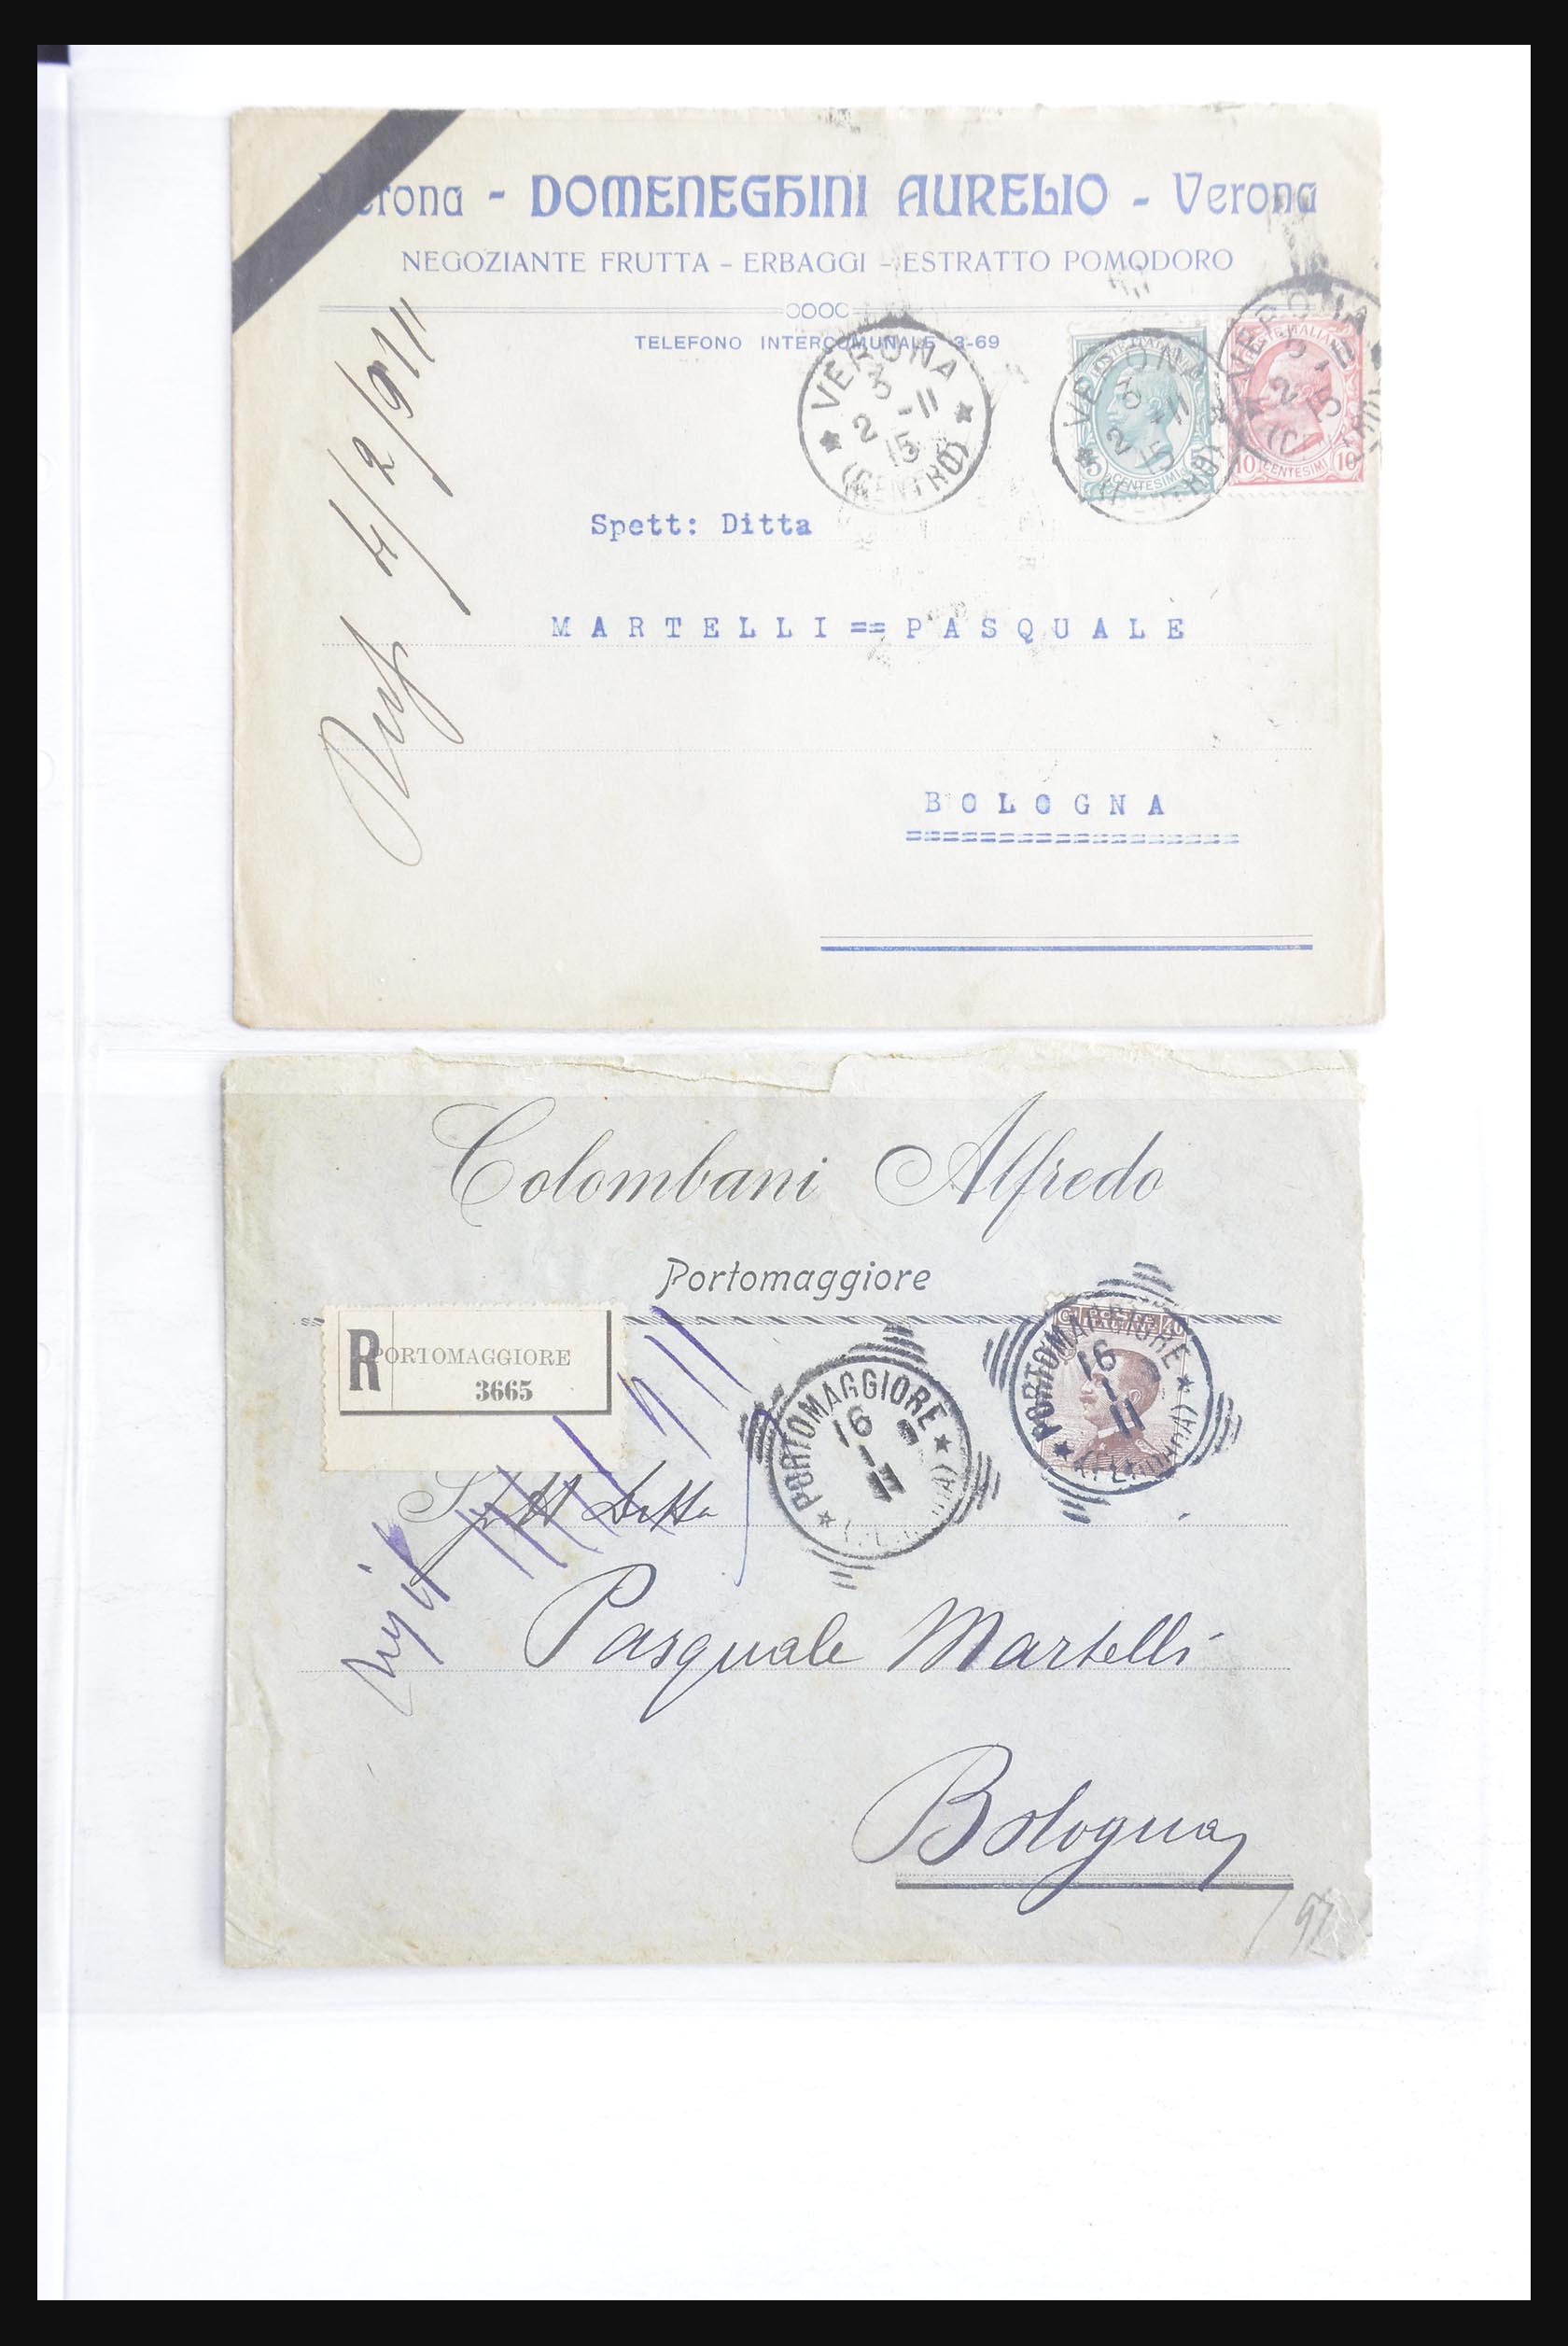 Verona - DOMENEGHINI AURELIO - Verona
NEGOZIANTE FRUTTA - ERBAGGI - ESTRATTO POMODORO
TELEFONO INTERCOMUNALE 3-69
VERONA
3
2 -11
15
(CENTRO)
VERONA
3
2 11
15
(CENTRO)
5 CENTESIMI
VERONA
POSTE ITALIANE
2
15
10 CENTESIMI 10
4/2/911
Spett: Ditta
MARTELLI == PASQUALE
BOLOGNA
Colombani Alfredo
Portomaggiore
R PORTOMAGGIORE
3665
PORTOMAGGIORE
16
1
11
PORTOMAGGIORE
16
1
11
(FERRARA)
40
Spett Ditta
Pasquale Martelli
Bologna